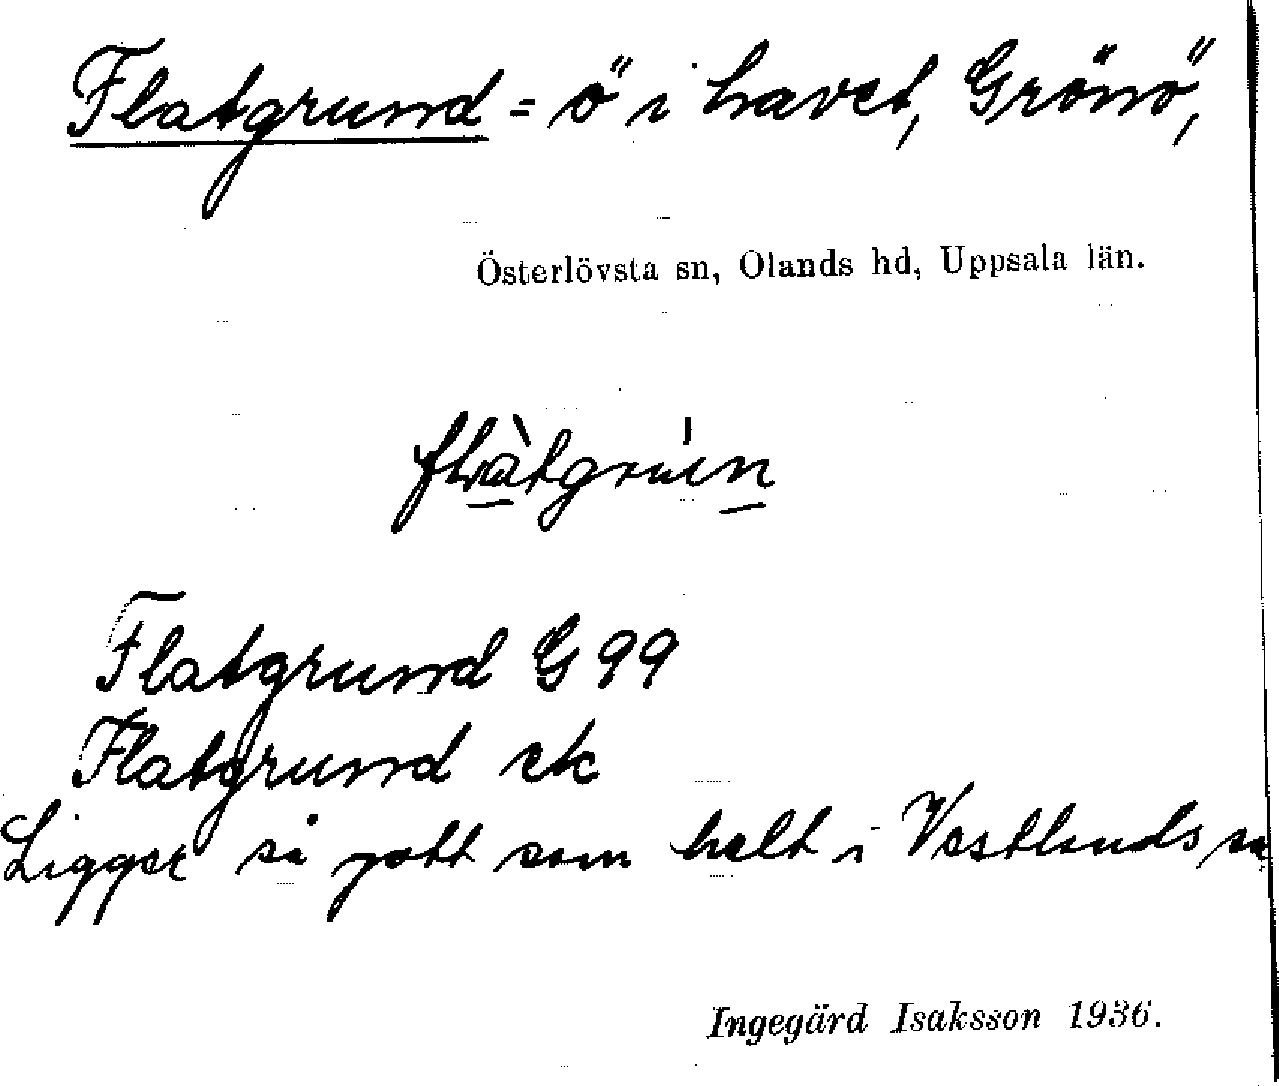 Flatgrund = ö i havet, Grönö,
Österlövsta sn, Olands hd, Uppsala län.
Flatgrund G 99
Flatgrund ek
Ligger så gott som helt i Vestlands sn
Ingegärd Isaksson 1936.